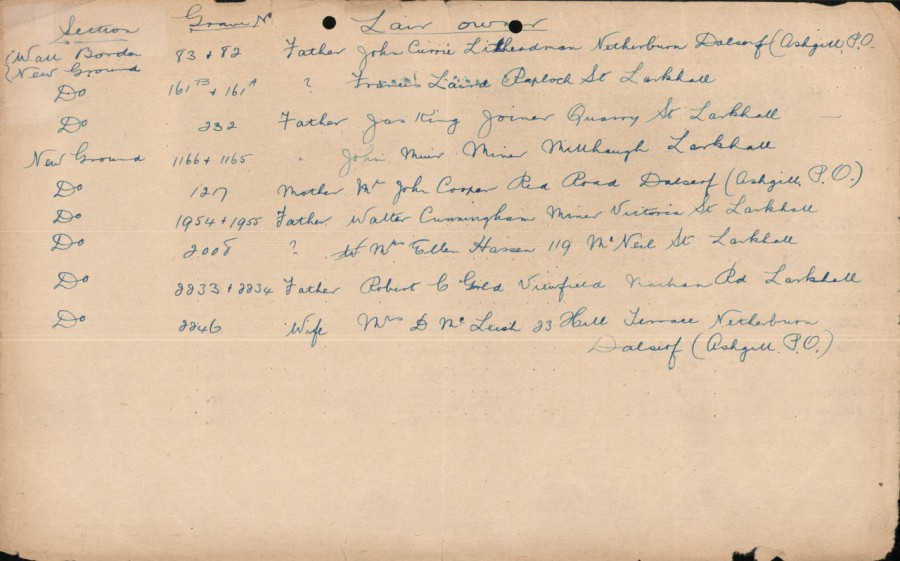 Section Grave No Lair owner
{Wall Border 83 + 82 Father John Currie Netherburn Dalserf (Ashgill P.O.
{New Ground
Do 161B + 161A ? Francis Laird Raploch St Larkhall
Do 232 Father Jas King Joiner Quarry St Larkhall
New Ground 1166 + 1165 " John Muir Miner Millheugh Larkhall
Do 127 Mother Mrs John Cooper Red Road Dalserf (Ashgill P.O.)
Do 1954 + 1955 Father Walter Cunningham Miner Victoria St Larkhall
Do 2008 ? Mrs Ellen Hassen 119 McNeil St Larkhall
Do 2233 + 2234 Father Robert C Gold Viewfield Rd Larkhall
Do 2246 Wife Mrs D McLeish 23 Hill Terrace Netherburn
Dalserf (Ashgill P.O.)